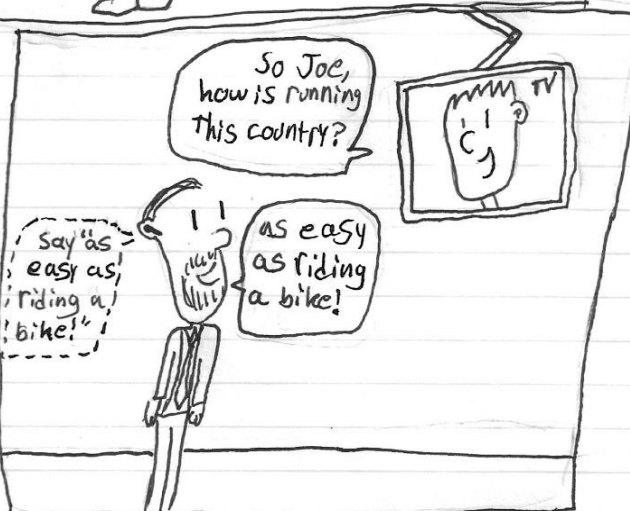 So Joe,
how is running
this country?
TV
say "as
easy as
riding a
bike!"
as easy
as riding
a bike!